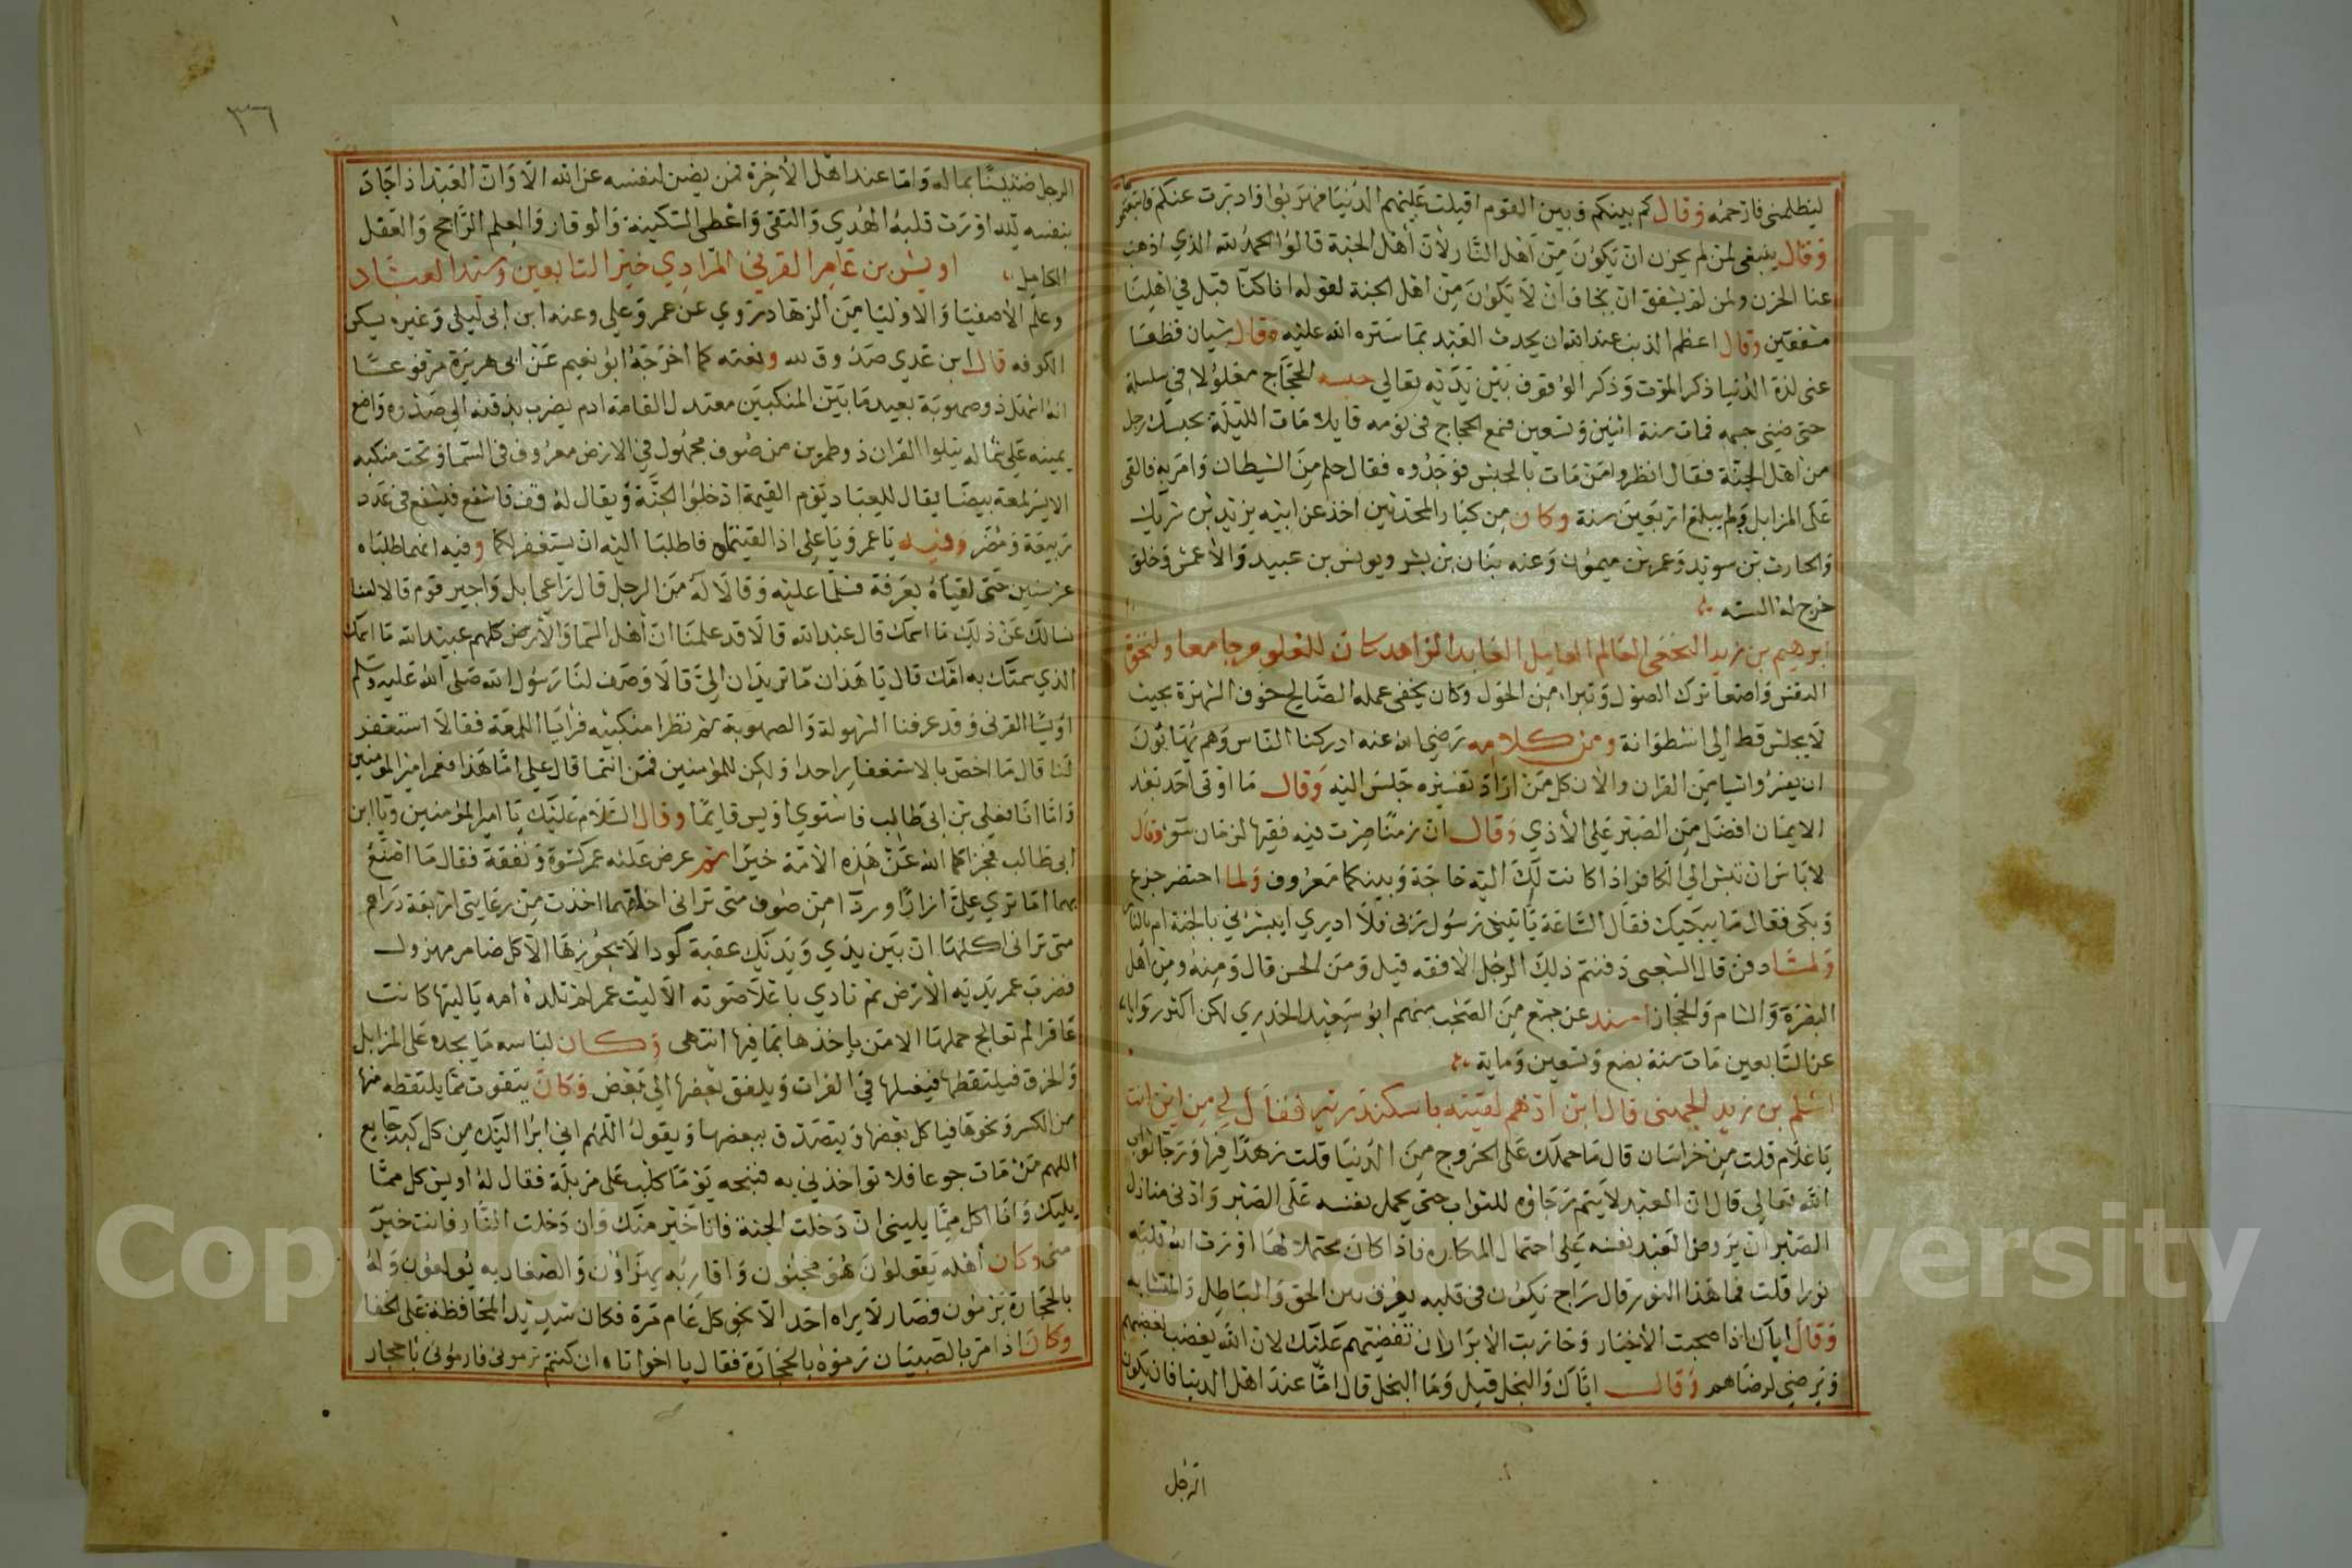 ليظلمني فارحمه وقال كم بينكم وبين القوم اقبلت عليهم الدنيا فهربوا وادبرت عنكم فاتبعتم
وقال ينبغي لمن لم يحزن ان يكون من اهل النار لان اهل الجنة قالوا الحمد لله الذي اذهب
عنا الحزن ولمن لم يشفق ان يخاف ان لا يكون من اهل الجنة لقولهم انا كنا قبل في اهلنا
مشفقين وقال اعظم الذنب عند الله ان يحدث العبد بما ستره الله عليه وقال شيان قطعا
عني لذة الدنيا ذكر الموت وذكر الوقوف بين يديه تعالي حبسه الحجاج مغلولا في سلسلة
حتى ضني جسمه فمات سنة اثنين وتسعين فسمع الحجاج في نومه قايلا مات الليلة بحبسك رجل
من اهل الجنة فقال انظروا من مات بالحبس فوجدوه فقال حلم من الشيطان وامر به فالقى
على المزابل ولم يبلغ اربعين سنة وكان من كبار المحدثين اخذ عن ابيه يزيد بن شريك
والحارث بن سويد وعمر بن ميمون وعنه بنان بن بشر ويونس بن عبيد والاعمش وخلق
خرج له الستة
ابرهيم بن زيد النخعي العالم العامل العابد الزاهد كان للعلوم جامعا ولنخوة
النفس واضعا ترك الصول وتبراء من الحول وكان يخفى عمله الصالح خوف الشهرة بحيث
لا يجلس قط الى اسطوانة ومن كلامه رضي الله عنه ادركنا الناس وهم يهابون
ان يفسروا شيا من القران والان كل من اراد تفسيره جلس اليه وقال ما اوتى احد بعد
الايمان افضل من الصبر على الاذي وقال ان زمنا صرت فيه فقيها لزمان سوء وقال
لا باس ان تبش الي الكافر اذا كانت لك اليه حاجة وبينكما معروف ولما احتضر جزع
وبكى فقال ما يبكيك فقال الساعة ياتيني رسول ربي فلا ادري ايبشرني بالجنة ام بالنار
ولما دفن قال الشعبي دفنتم ذلك الرجل الافقه قيل ومن الحسن قال ومنه ومن اهل
البصرة والشام والحجاز اسند عن جمع من الصحب منهم ابو سعيد الخدري لكن اكثر رواياته
عن التابعين مات سنة بضع وتسعين وماية
اسلم بن زيد الجهني قال ابن ادهم لقيته باسكندرية فقال لي من اين انت
يا غلام قلت من خراسان قال ما حملك على الخروج من الدنيا قلت زهدا فيها ورجا ثواب
الله تعالي قال ان العبد لا يتم رجاؤه للثواب حتى يحمل نفسه على الصبر وادنى منازل
الصبر ان يروض العبد نفسه على احتمال المكاره فاذا كان محتملا لها اورث الله قلبه
نورا قلت فما هذا النور قال سراج يكون في قلبه يعرف بين الحق والباطل والمتشابه
وقال اياك اذا صحبت الاخيار وحاربت الابرار ان تغضبهم عليك لان الله يغضب لغضبهم
ويرضي لرضاهم وقال اياك والبخل قيل وما البخل قال اما عند اهل الدنيا فان يكون
الرجل
٣٦
الرجل ضنينا بماله واما عند اهل الاخرة فمن يضن لنفسه عن الله الا وان العبد اذا جاد
بنفسه لله اورث قلبه الهدي والتقى واعطى السكينة والوقار والعلم الراجح والعقل
الكامل اويس بن عامر القرني المرادي خير التابعين وسيد العباد
وعلم الاصفيا والاوليا من الزهاد يروي عن عمر وعلي وعنه ابن ابي ليلى وغيره يسكن
الكوفه قال ابن عدي صدوق ونعته كما اخرجه ابو نعيم عن ابي هريرة مرفوعا
انه اشهل ذو صهوبة بعيد ما بين المنكبين معتدل القامة ادم يضرب بذقنه الي صدره واضع
يمينه على شماله يتلوا القران ذو طمرين من صوف مجهول في الارض معروف في السما وتحت منكبه
الايسر لمعة بيضا يقال للعباد يوم القيمة ادخلوا الجنة ويقال له قف فاشفع فيشفع في عدد
ربيعة ومضر وفيه يا عمر ويا علي اذا لقيتماه فاطلبا اليه ان يستغفر لكما وفيه انهما طلباه
عشر سنين حتى لقياه بعرفة فسلما عليه وقالا له من الرجل قال راعي ابل واجير قوم قالا لسنا
نسالك عن ذلك ما اسمك قال عبد الله قالا قد علمنا ان اهل السما والارض كلهم عبيد الله ما اسمك
الذي سمتك به امك قال يا هذان ما تريدان الي قالا وصف لنا رسول الله صلى الله عليه وسلم
اويسا القرني وقد عرفنا الشهولة والصهوبة ثم نظرا منكبيه فرايا اللمعة فقالا استغفر
لنا قال ما اخص بالاستغفار احدا ولكن للمومنين فمن انتما قال علي اما هذا فعمر امير المومنين
واما انا فعلي بن ابي طالب فاستوي اويس قايما وقال السلام عليك يا امير المومنين ويا ابن
ابي طالب فجزاكما الله عن هذه الامة خيرا ثم عرض عليه عمر كسوة ونفقة فقال ما اصنع
بهما اما تري علي ازارا وردا من صوف متى تراني اخلقهما اخذت من رعايتي اربعة دراهم
متى تراني اكلتها ان بين يدي ويديك عقبة كودا لا يجوزها الا كل ضامر مهزول
فضرب عمر بدرته الارض ثم نادي باعلا صوته الا ليت عمر لم تلده امه يا ليتها كانت
عاقرا لم تعالج حملها الا من ياخذها بما فيها انتهى وكان لباسه ما يجده على المزابل
والخرق فيلتقطها فيغسلها في الفرات ويلفق بعضها الي بعض وكان يتقوت مما يلتقطه منها
من الكسر ونحوها فياكل بعضها ويتصدق ببعضها ويقول اللهم اني ابرا اليك من كل كبد جايع
اللهم من مات جوعا فلا تواخذني به فنبحه يوما كلب على مزبلة فقال له اويس كل مما
يليك وانا اكل مما يليني ان دخلت الجنة فانا خير منك وان دخلت النار فانت خير
مني وكان اهله يقولون هو مجنون واقاربه يهزاون والصغار به يولعون وله
بالحجارة يرمون فصار لا يراه احد الا نحو كل عام مرة فكان شديد المحافظة على الخفا
وكان اذا مر بالصبيان رموه بالحجارة فقال يا اخوتاه ان كنتم ترموني فارموني باحجار
Copyright © King Saud University